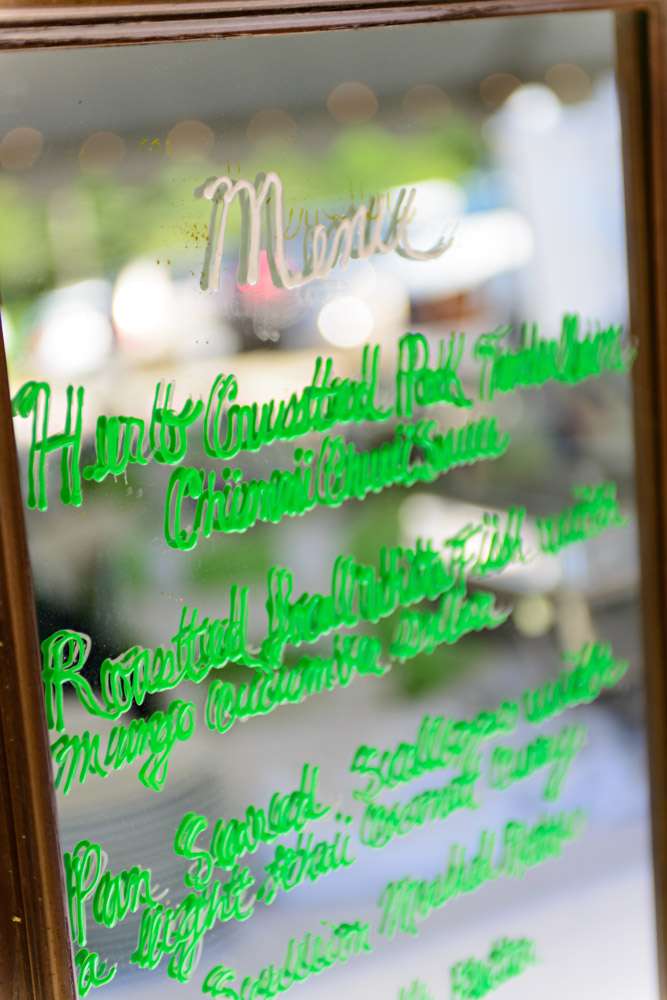 Menu
Herb Crusted Pork Tenderloin
Chimmi Churri Sauce
Roasted Local White Fish with
Mango Cucumber
Pan Seared Scallops with
a light thai coconut curry
Scallion Mashed